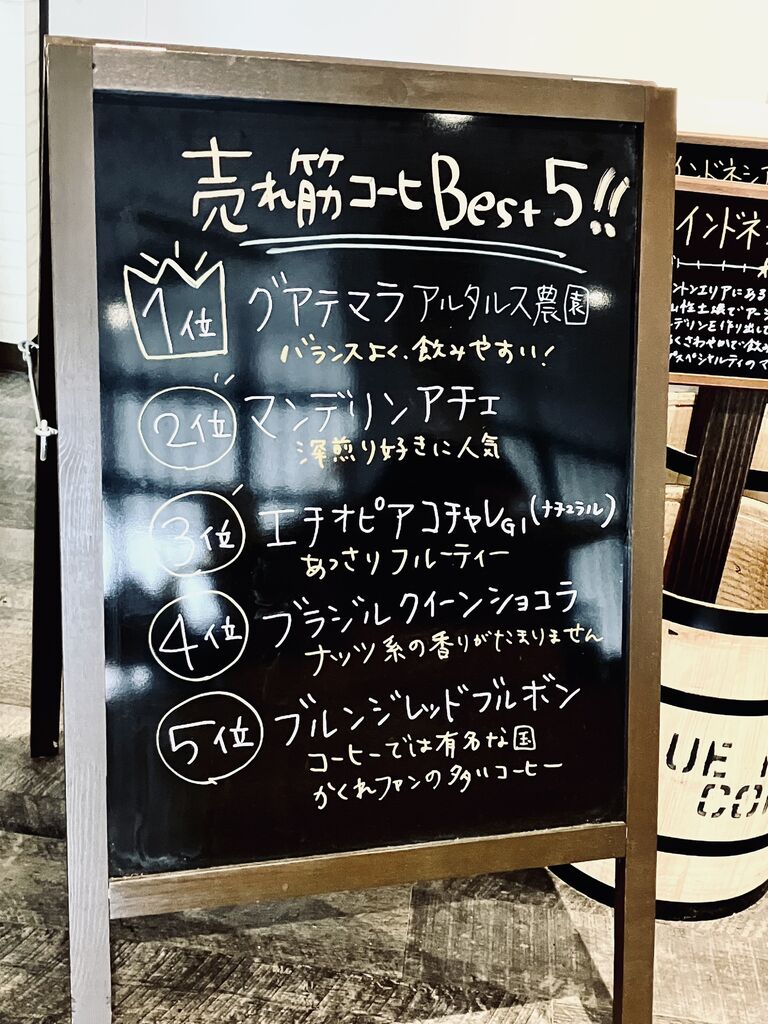 売れ筋コーヒ Best 5!!
1位 グアテマラ アルタルス農園
バランスよく、飲みやすい!
2位 マンデリン アチェ
深煎り好きに人気
3位 エチオピア コチャレG1(ナチュラル)
あっさり フルーティー
4位 ブラジル クイーンショコラ
ナッツ系の香りがたまりません
5位 ブルンジ レッドブルボン
コーヒーでは有名な国
かくれファンの多いコーヒー
インドネシア
インドネ
ントンエリアにある
デリンを作り出して
さわやかで飲み
スペシャルティのマ
UE
CO